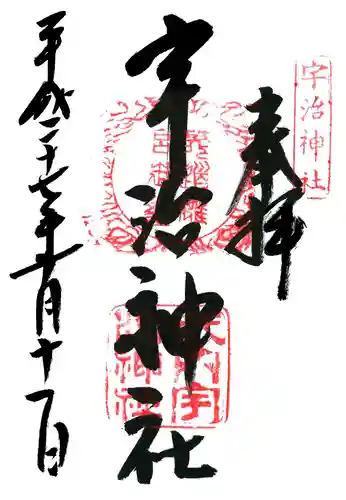 宇治神社
奉拝
宇治神社
式内宇
治神社
平成二十七年一月十一日